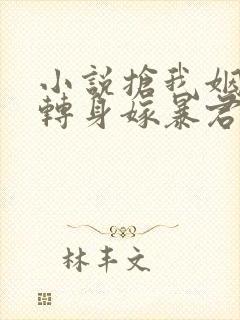 小說搶我姻
轉身嫁暴君
林丰文